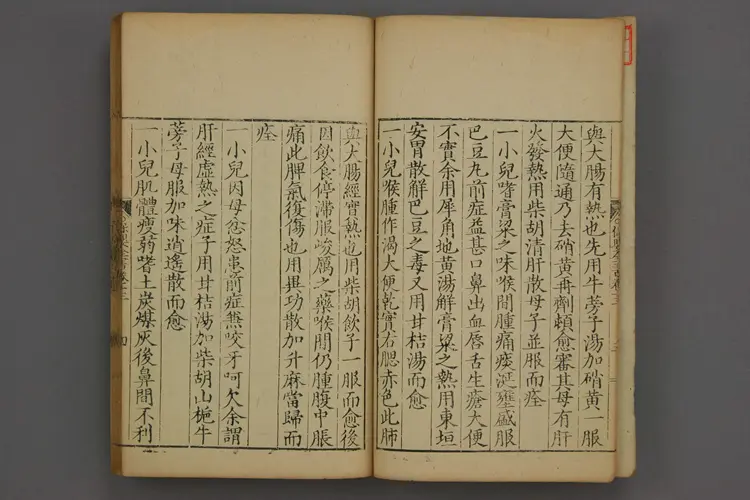 與大腸有熱也先用牛蒡子湯加硝黄一服
大便隨通乃去硝黄再劑頓愈審其母有肝
火發熱用柴胡清肝散母子並服而痊
一小兒嗜膏粱之味喉間腫痛痰涎壅盛服
巴豆丸前症益甚口鼻出血唇舌生瘡大便
不實余用犀角地黄湯解膏粱之熱用東垣
安胃散解巴豆之毒又用甘桔湯而愈
一小兒喉腫作渴大便乾實右腮赤色此肺
與大腸經實熱也用柴胡飲子一服而愈後
因飲食停滯服峻厲之藥喉間仍腫腹中脹
痛此脾氣復傷也用異功散加升麻當歸而
痊
一小兒因母忿怒患前症兼咬牙呵欠余謂
肝經虚熱之症子用甘桔湯加柴胡山梔牛
蒡子母服加味逍遙散而愈
一小兒肌體瘦弱嗜土炭煤灰後鼻間不利